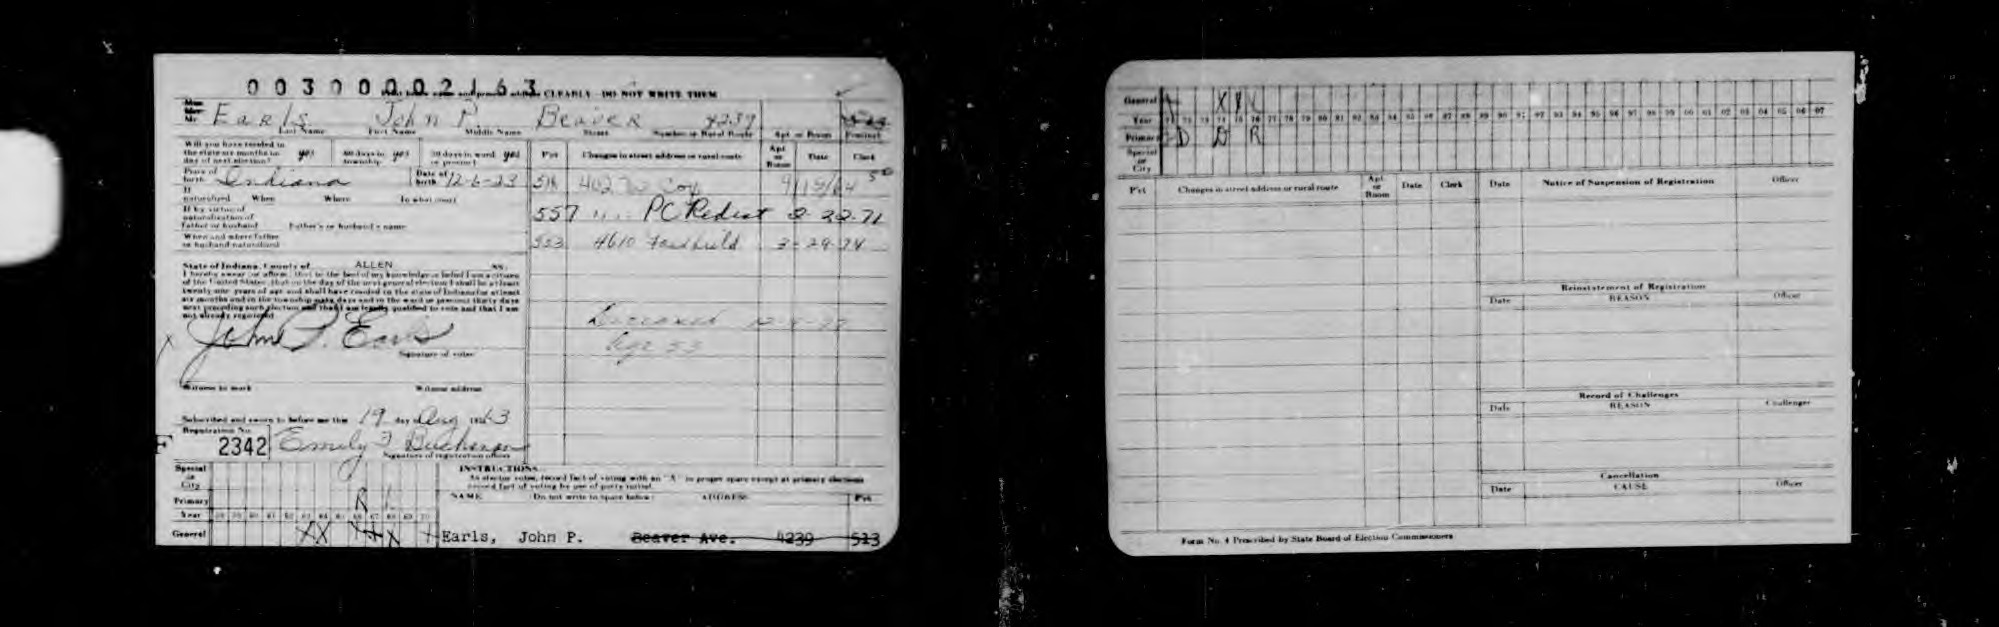 003000002163
CLEARLY - DO NOT WRITE THEM
Earls John P. Beaver 4239
Last Name First Name Middle Name Street Number or Rural Route Apt. or Room Precinct
Will you have resided in the state six months on day of next election? yes 60 days in township yes 30 days in ward or precinct yes
Pct Changes in street address or rural route Apt. or Room Date Clerk
Place of birth Indiana Date of birth 12-6-23
If naturalized When Where In what court
If by virtue of naturalization of father or husband Father's or husband's name
When and where father or husband naturalized
557 PC Redist 2-22-71
553 4610 Fairfield 3-29-74
Deceased
Age 53
State of Indiana, County of ALLEN SS:
I hereby swear (or affirm) that to the best of my knowledge or belief I am a citizen
of the United States, that on the day of the next general election I shall be at least
twenty-one years of age and shall have resided in the state of Indiana for at least
six months and in the township sixty days and in the ward or precinct thirty days
next preceding such election and that I am legally qualified to vote and that I am
not already registered.
John P. Earls
Signature of voter
Witness to mark Witness address
Subscribed and sworn to before me this 19 day Aug 1963
Registration No.
F 2342 Emily F Buchanan
Signature of registration officer
Special or City
Primary R
Year
General
INSTRUCTIONS
As elector votes, record fact of voting with an "X" in proper space except at primary elections
record fact of voting by use of party initial.
NAME Do not write in space below: ADDRESS Pct
Earls, John P. Beaver Ave. 4239 513
General X X
Year 71 72 73 74 75 76 77 78 79 80 81 82 83 84 85 86 87 88 89 90 91 92 93 94 95 96 97 98 99 00 01 02 03 04 05 06 07
Primary D D R
Special or City
Pct Changes in street address or rural route Apt. or Room Date Clerk
Date Notice of Suspension of Registration Officer
Reinstatement of Registration
Date REASON Officer
Record of Challenges
Date REASON Challenger
Cancellation
Date CAUSE Officer
Form No. 4 Prescribed by State Board of Election Commissioners